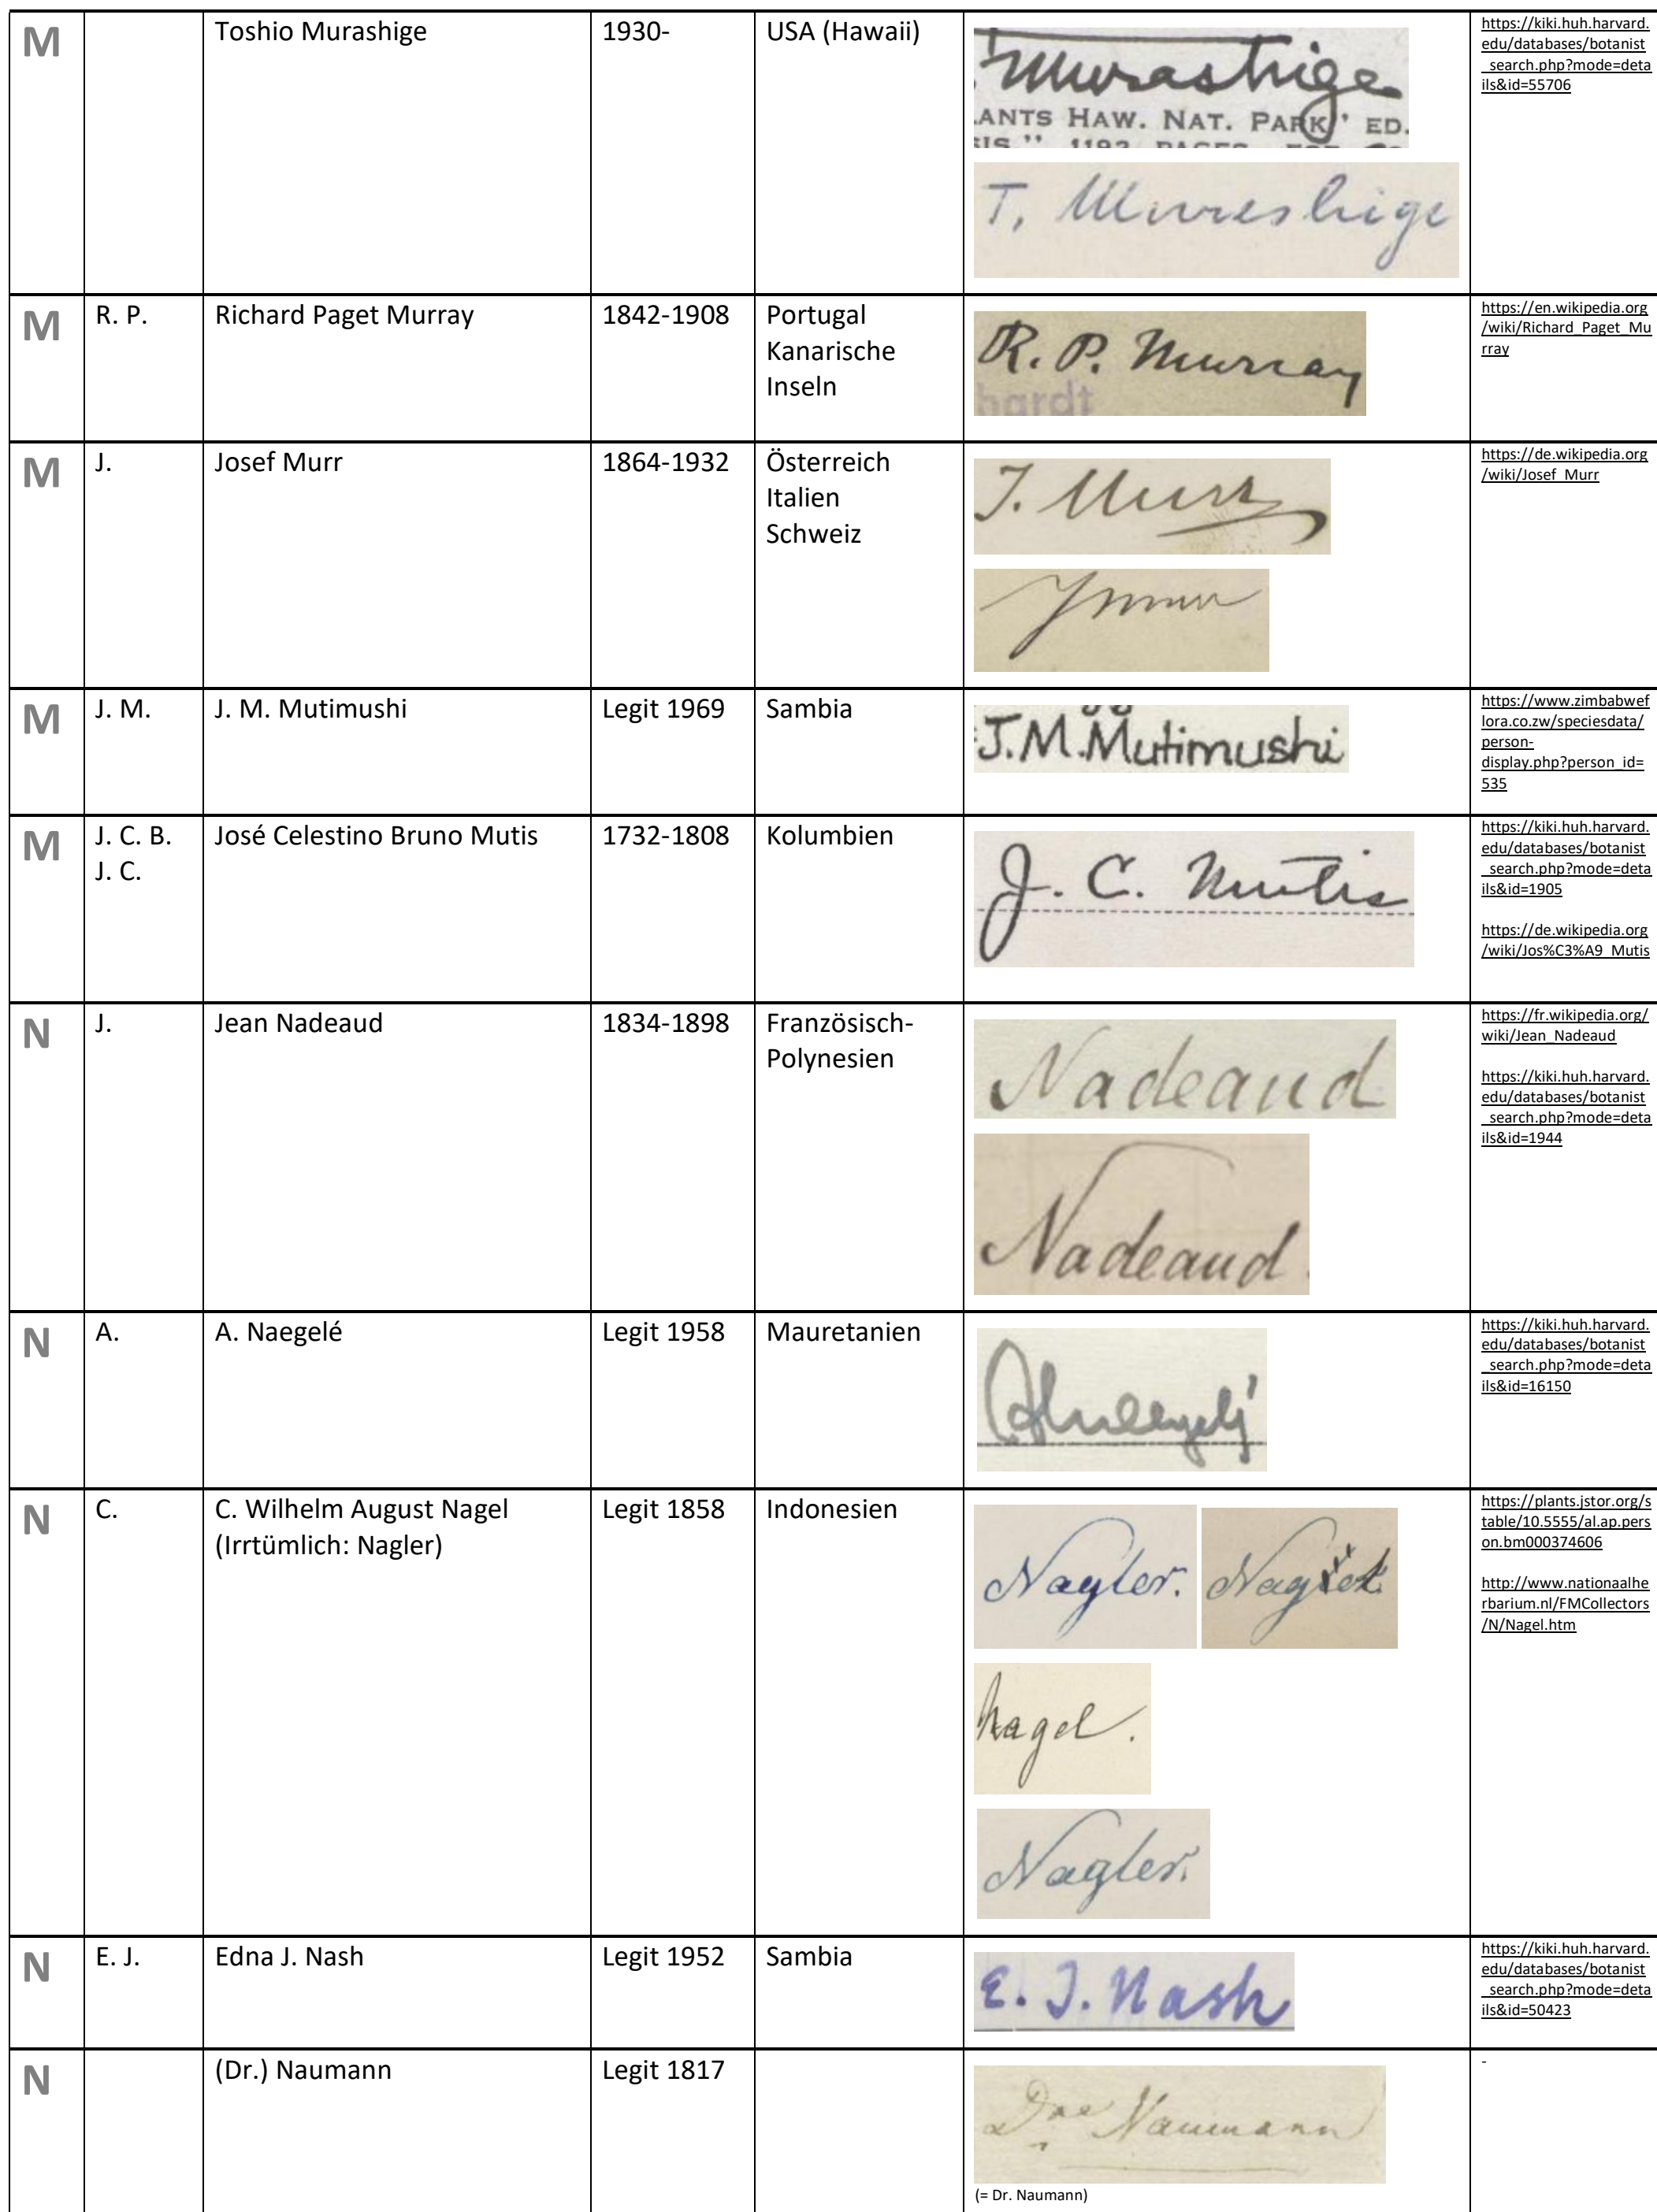 M Toshio Murashige 1930- USA (Hawaii)
Murashige
LANTS HAW. NAT. PARK" ED.
SIS " 1192 PAGES
T. Murashige
https://kiki.huh.harvard.
edu/databases/botanist
_search.php?mode=deta
ils&id=55706
M R. P. Richard Paget Murray 1842-1908 Portugal
Kanarische
Inseln
R. P. Murray
hardt
https://en.wikipedia.org
/wiki/Richard_Paget_Mu
rray
M J. Josef Murr 1864-1932 Österreich
Italien
Schweiz
J. Murr
JMurr
https://de.wikipedia.org
/wiki/Josef_Murr
M J. M. J. M. Mutimushi Legit 1969 Sambia
J.M.Mutimushi
https://www.zimbabwef
lora.co.zw/speciesdata/
person-
display.php?person_id=
535
M J. C. B. José Celestino Bruno Mutis 1732-1808 Kolumbien
J. C.
J. C. Mutis
https://kiki.huh.harvard.
edu/databases/botanist
_search.php?mode=deta
ils&id=1905
https://de.wikipedia.org
/wiki/Jos%C3%A9_Mutis
N J. Jean Nadeaud 1834-1898 Französisch-
Polynesien
Nadeaud
Nadeaud.
https://fr.wikipedia.org/
wiki/Jean_Nadeaud
https://kiki.huh.harvard.
edu/databases/botanist
_search.php?mode=deta
ils&id=1944
N A. A. Naegelé Legit 1958 Mauretanien
ANaegelé
https://kiki.huh.harvard.
edu/databases/botanist
_search.php?mode=deta
ils&id=16150
N C. C. Wilhelm August Nagel Legit 1858 Indonesien
(Irrtümlich: Nagler)
Nagler.
Nagel.
Nagler.
https://plants.jstor.org/s
table/10.5555/al.ap.pers
on.bm000374606
http://www.nationaalhe
rbarium.nl/FMCollectors
/N/Nagel.htm
N E. J. Edna J. Nash Legit 1952 Sambia
E. J. Nash
https://kiki.huh.harvard.
edu/databases/botanist
_search.php?mode=deta
ils&id=50423
N (Dr.) Naumann Legit 1817 -
Naumann
(= Dr. Naumann)